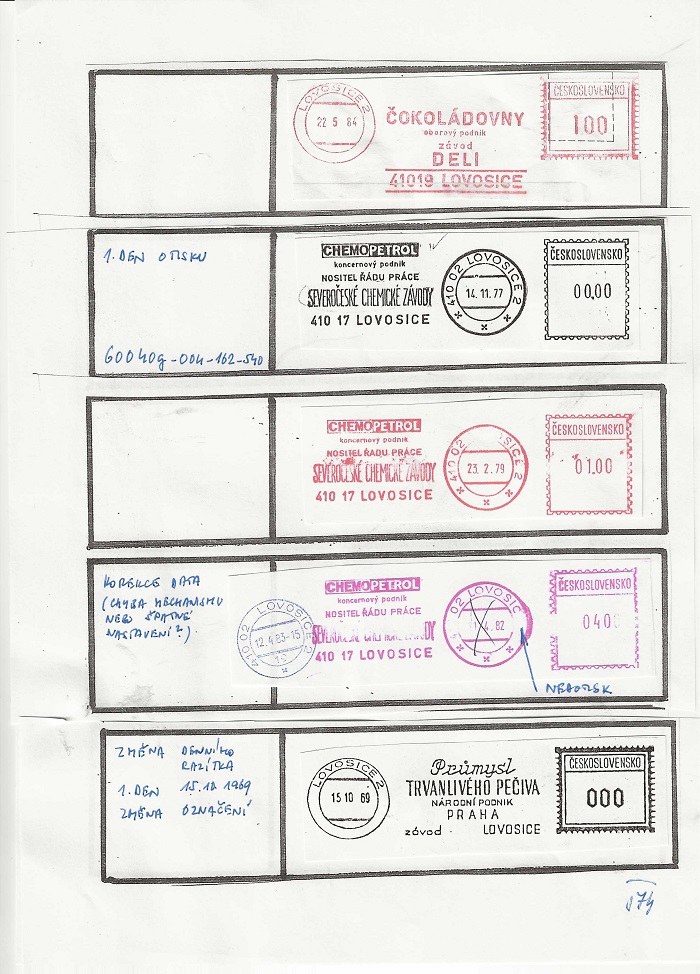 LOVOSICE 2
22 5 84
ČOKOLÁDOVNY
oborový podnik
závod
DELI
41019 LOVOSICE
ČESKOSLOVENSKO
100
1. DEN OTISKU
60040g-004-102-540
CHEMOPETROL
koncernový podnik
NOSITEL ŘÁDU PRÁCE
SEVEROČESKÉ CHEMICKÉ ZÁVODY
410 17 LOVOSICE
410 02 LOVOSICE 2
14.11.77
ČESKOSLOVENSKO
00,00
CHEMOPETROL
koncernový podnik
NOSITEL ŘÁDU PRÁCE
SEVEROČESKÉ CHEMICKÉ ZÁVODY
410 17 LOVOSICE
410 02 LOVOSICE 2
23. 2. 79
ČESKOSLOVENSKO
01.00
KOREKCE DATA
(CHYBA MECHANISMU
NEBO ŠPATNÉ
NASTAVENÍ?)
410 02 LOVOSICE 2
12.4.83-15
CHEMOPETROL
koncernový podnik
NOSITEL ŘÁDU PRÁCE
SEVEROČESKÉ CHEMICKÉ ZÁVODY
410 17 LOVOSICE
02 LOVOSIC
4. 82
ČESKOSLOVENSKO
040
NEDOTISK
ZMĚNA DENNÍHO
RAZÍTKA
1. DEN 15.10 1969
ZMĚNA OZNAČENÍ
LOVOSICE 2
15 10 69
Průmysl
TRVANLIVÉHO PEČIVA
NÁRODNÍ PODNIK
PRAHA
závod LOVOSICE
ČESKOSLOVENSKO
000